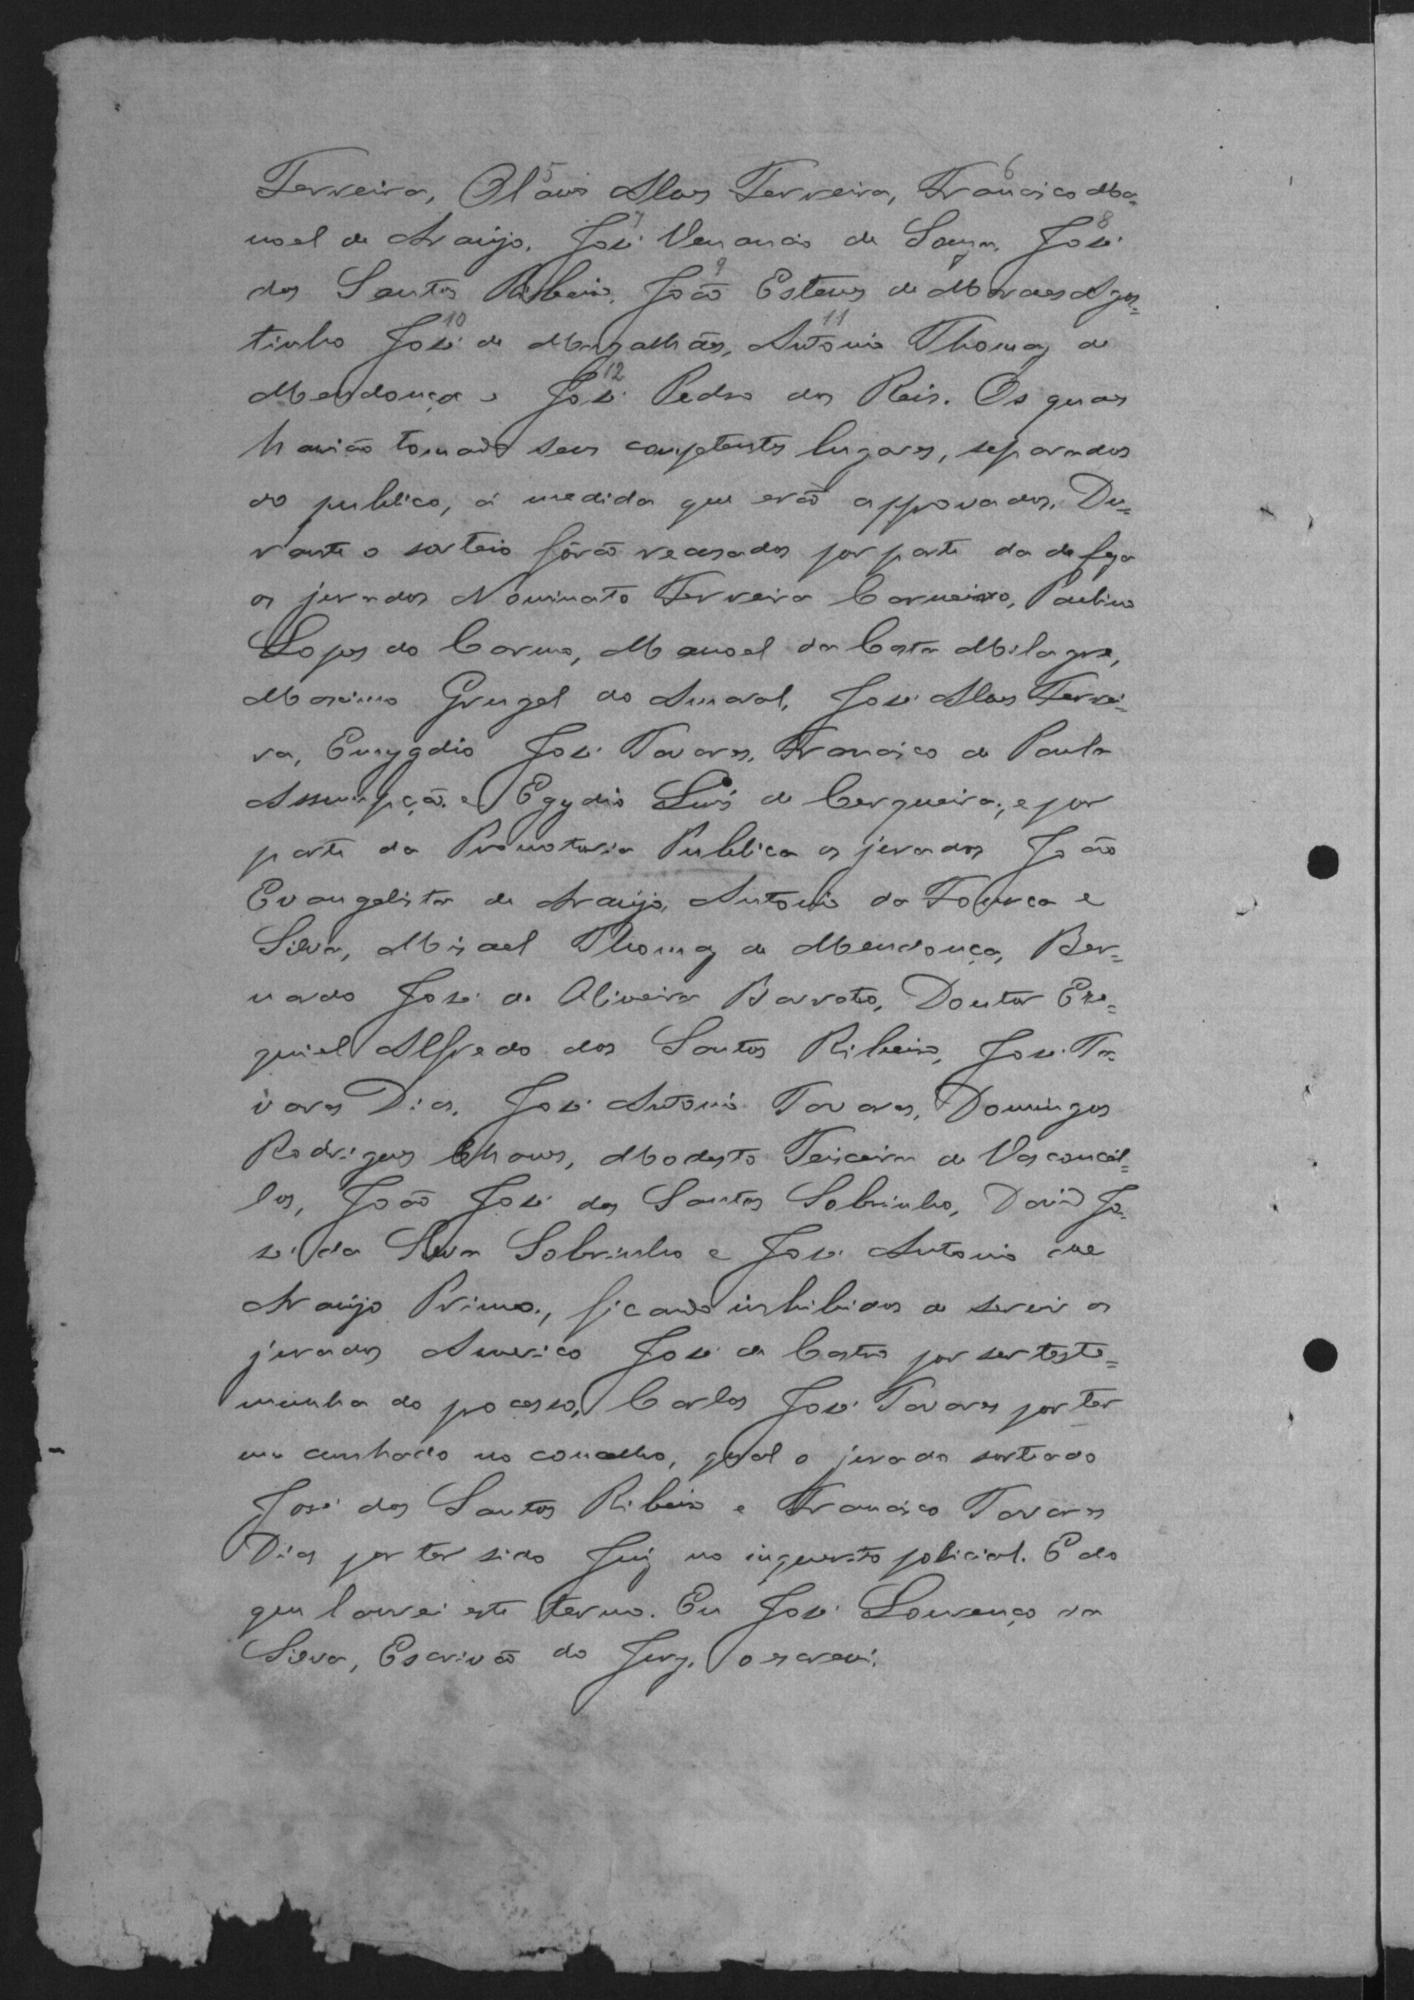 Ferreira, Olavo Alves Ferreira, Francisco Ma-
noel de Araujo, José Venancio de Souza, José
dos Santos Ribeiro, João Esteves de Moraes Agos=
tinho José de Magalhães, Antonio Thomaz de
Mendonça e José Pedro dos Reis. Os quaes
havião tomado seus competentes lugares, separados
do publico, á medida que erão approvados. Du=
rante o sorteio fôrão recusados por parte da defeza
os jurados Nominato Ferreira Carneiro, Paulino
Lopes do Carmo, Manoel da Costa Milagre,
Maximo Gurgel do Amaral, José Alves Ferrei=
ra, Emygdio José Tavares, Francisco de Paula
Assumpção e Egydio Luis de Cerqueira; e por
parte da Promotoria Publica os jurados João
Evangelista de Araujo, Antonio da Fonseca e
Silva, Misael Thomaz de Mendonça, Ber=
nardo José de Oliveira Barroto, Doutor Eze=
quiel Alfredo dos Santos Ribeiro, José Ta-
vares Dias, José Antonio Tavares, Domingos
Rodrigues Chaves, Modesto Teixeira de Vasconcel=
los, João José dos Santos Sobrinho, David Jo-
sé da Silva Sobrinho e José Antonio de
Araujo Primo, ficando inhibidos de servir os
jurados Americo José de Castro por ser teste=
munha do pocesso, Carlos José Tavares por ter
um cunhado no concelho, qual o jurado sorteado
José dos Santos Ribeiro e Francisco Tavares
Dias por ter sido Juiz no inquerito policial. E do
que lavrei este termo. Eu José Lourenço da
Silva, Escrivão do Jury, o escrevi.
5
6
7
8
9
10
11
12